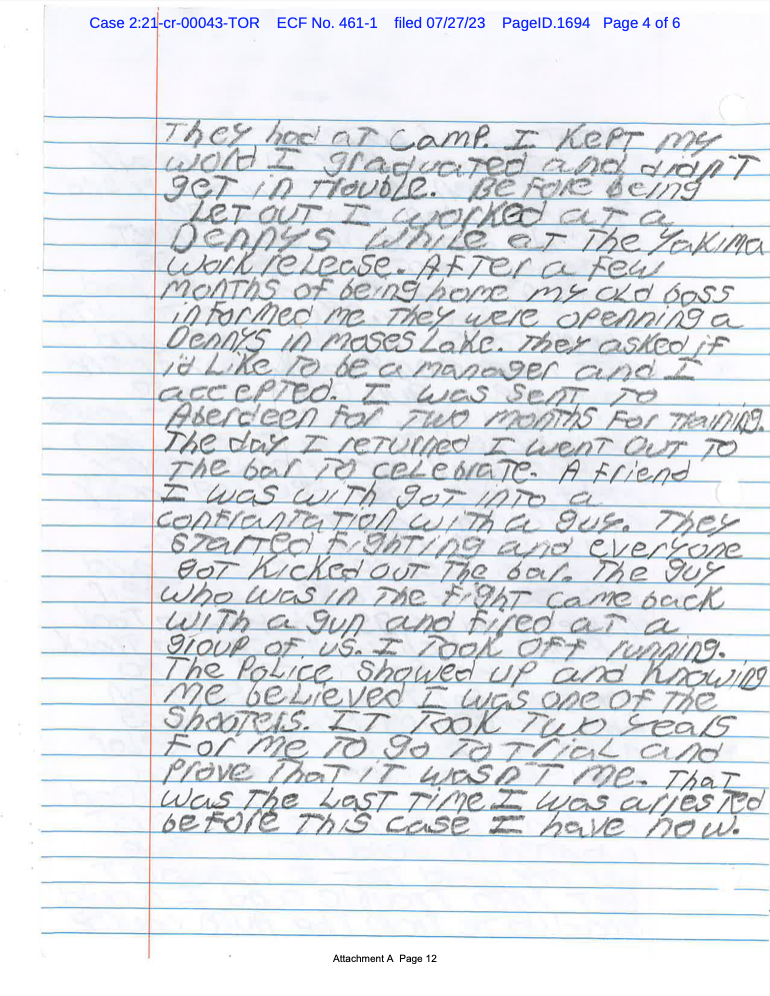 Case 2:21-cr-00043-TOR ECF No. 461-1 filed 07/27/23 PageID.1694 Page 4 of 6
They had at camp. I kept my
word I graduated and didn't
get in trouble. Before being
Let out I worked at a
Dennys while at the Yakima
work release. After a few
months of being home my old boss
informed me they were openning a
Dennys in Moses Lake. They asked if
i'd Like to be a manager and I
accepted. I was sent to
Aberdeen for two months for training.
The day I returned I went out to
the bar to celebrate. A friend
I was with got into a
confrantation with a guy. They
started fighting and everyone
got kicked out the bar. The guy
who was in the fight came back
with a gun and fired at a
group of us. I took off running.
The Police showed up and knowing
me believed I was one of the
shooters. It took two years
for me to go to trial and
prove that it wasn't me. That
was the last time I was arrested
before this case I have now.
Attachment A Page 12